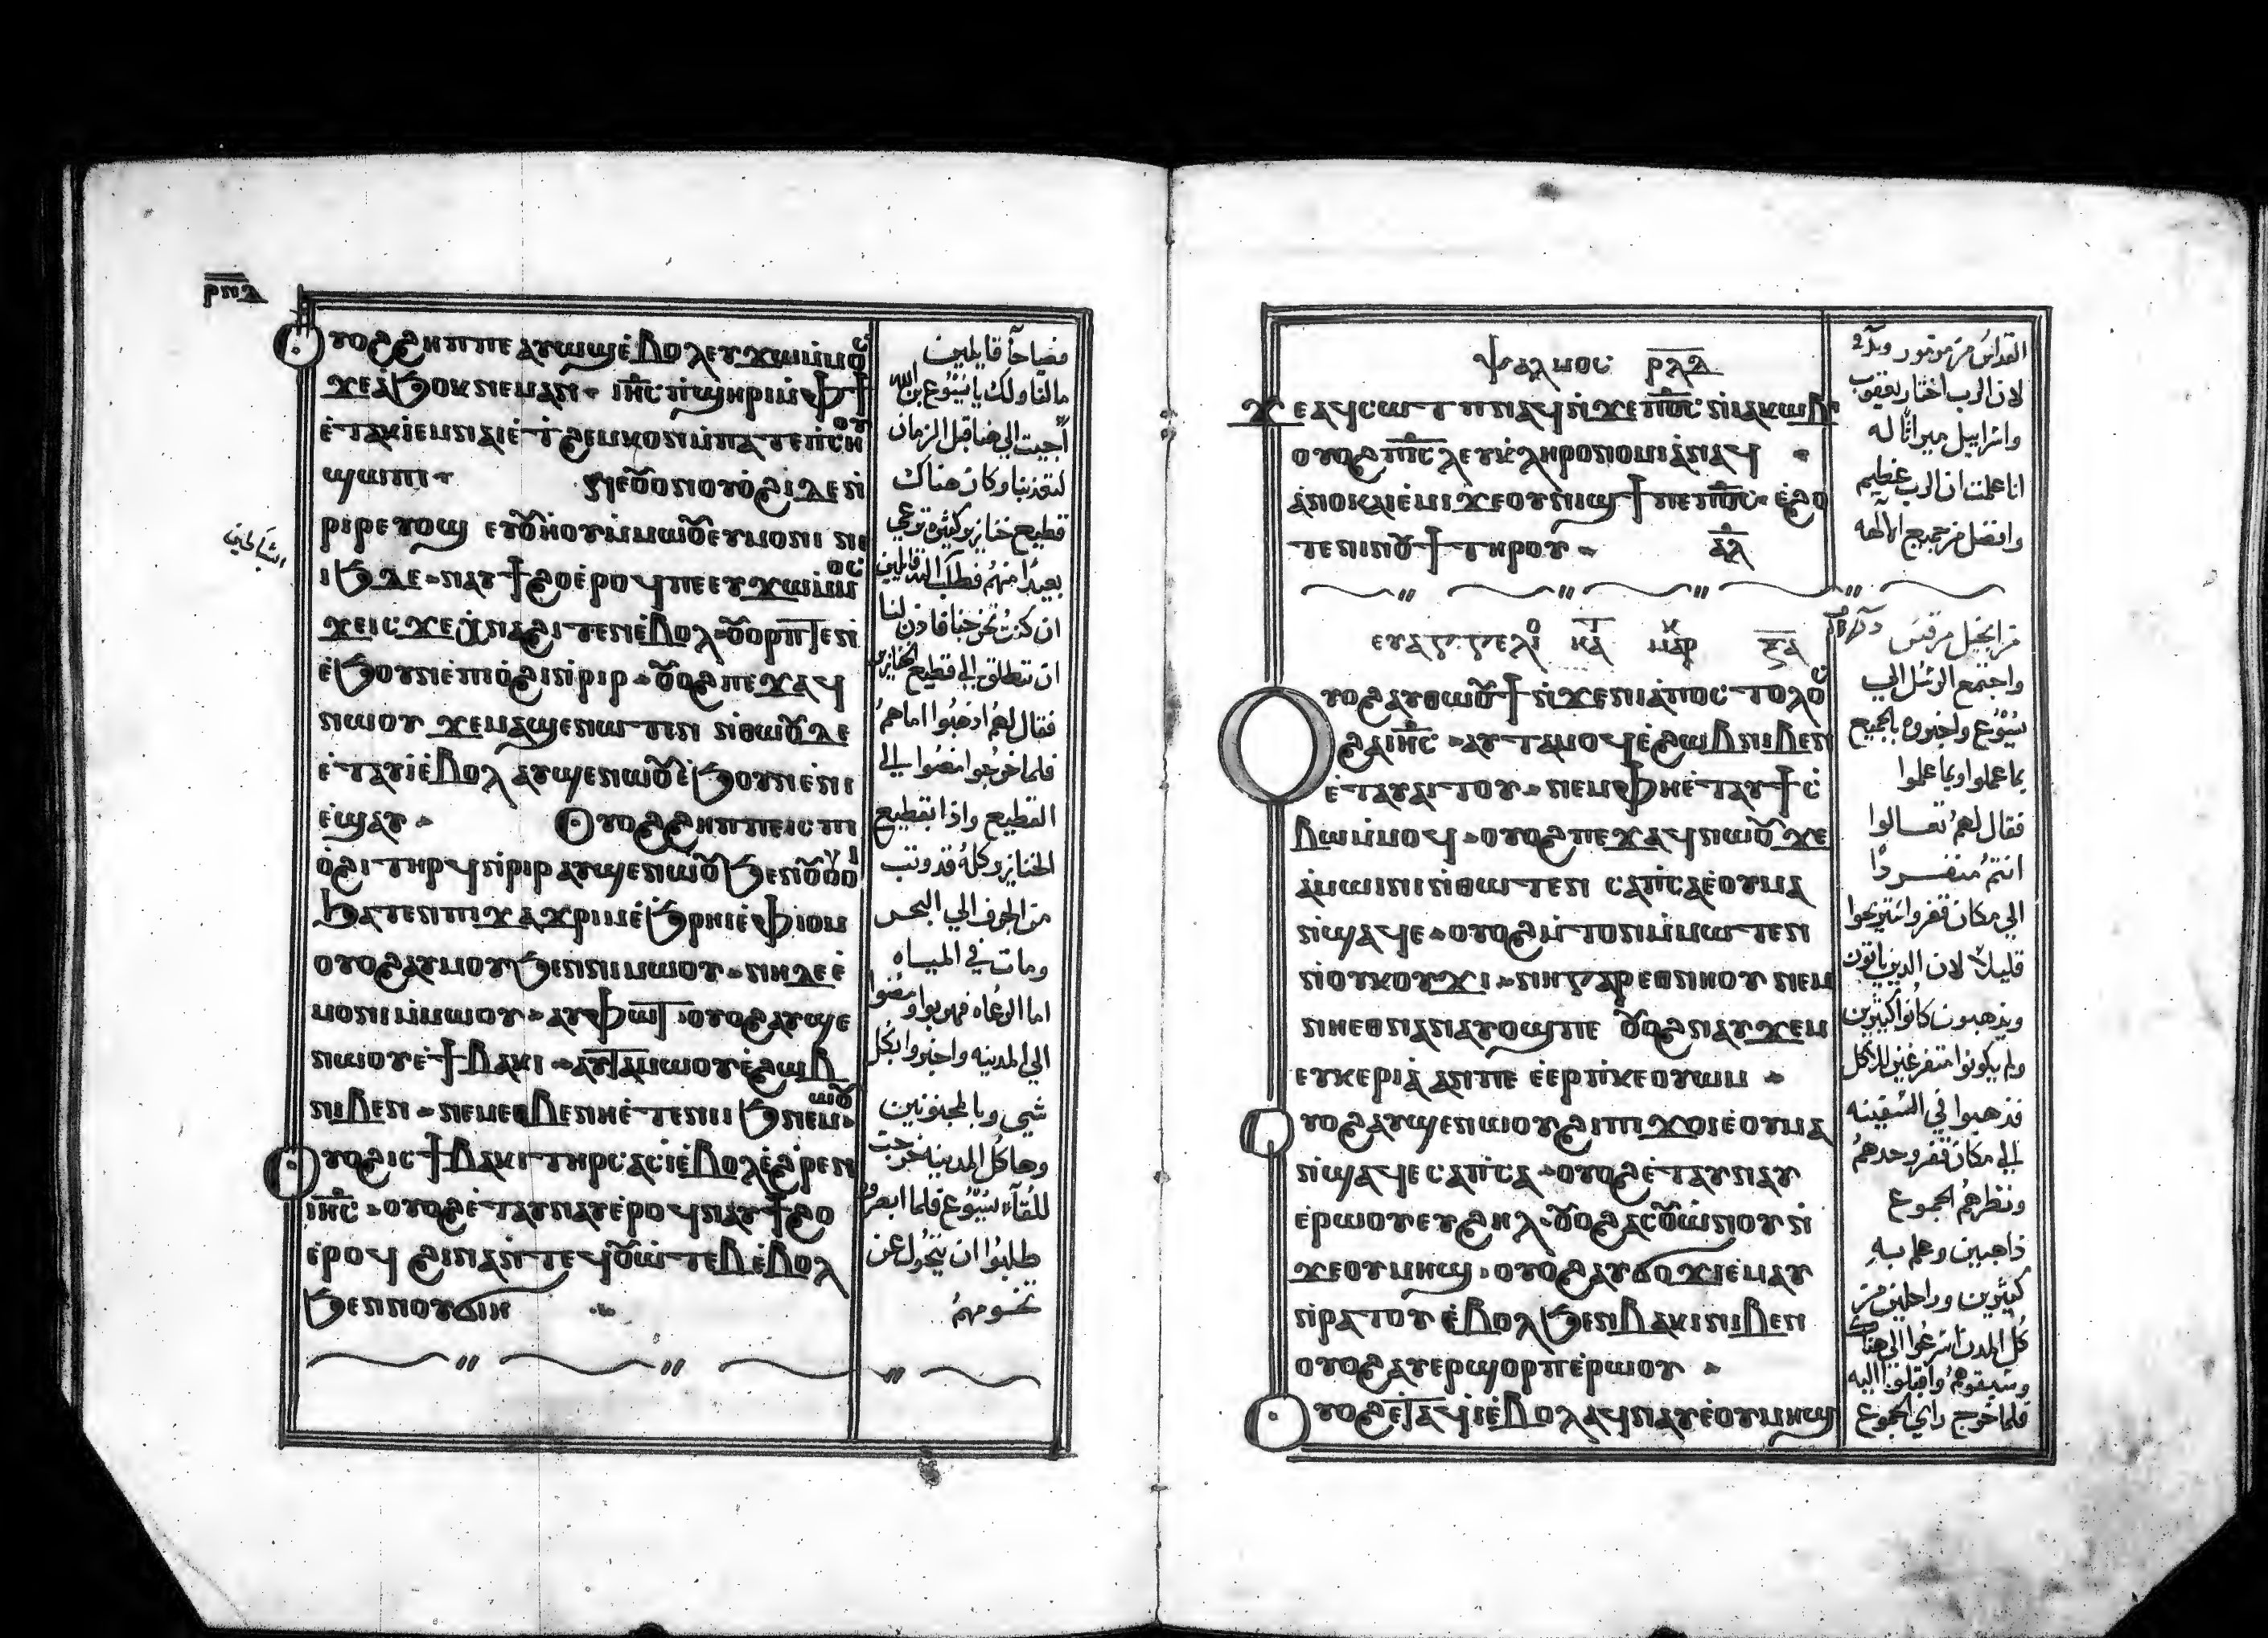 ⲣⲡⲇ
ⲟⲩⲟϩ ϩⲏⲡⲡⲉ ⲁⲩⲱϣ ⲉ̀ⲃⲟⲗ ⲉⲩϫⲱ ⲙ̀ⲙⲟⲥ
ϫⲉ ⲁ̀ϧⲟⲕ ⲛⲉⲙⲁⲛ ⲓⲏ̅ⲥ̅ ⲡ̀ϣⲏⲣⲓ ⲙ̀ⲫϯ
ⲉ̀ⲧⲁⲕⲓ̀ ⲉ̀ⲙⲛⲁⲓ ⲉ̀ⲧϩⲉⲙⲕⲟⲛ ⲙ̀ⲡⲁⲧⲉ ⲡ̀ⲥⲏⲟⲩ
ϣⲱⲡⲓ ⲛⲉ ⲟⲩⲟⲛ ⲟⲩⲟ̀ϩⲓ ⲇⲉ ⲛ̀
ⲣⲓⲣ ⲉⲩⲟϣ ⲉⲩⲟⲩⲏ̀ⲟⲩ ⲙ̀ⲙⲱⲟⲩ ⲉⲩⲙⲟⲛⲓ ⲛⲓ
ⲓϧ ⲇⲉ ⲛⲁⲩϯϩⲟ ⲉ̀ⲣⲟϥ ⲡⲉ ⲉⲩϫⲱ ⲙ̀ⲙⲟⲥ
ϫⲉ ⲓⲥϫⲉ ⲭⲛⲁϩⲓⲧⲉⲛ ⲉ̀ⲃⲟⲗ ⲟⲩⲟⲣⲡⲧⲉⲛ
ⲉ̀ϧⲟⲩⲛ ⲉ̀ⲡⲓⲟ̀ϩⲓ ⲛ̀ⲣⲓⲣ ⲟⲩⲟϩ ⲡⲉϫⲁϥ
ⲛⲱⲟⲩ ϫⲉ ⲙⲁϣⲉⲛⲱⲧⲉⲛ ⲛ̀ⲑⲱⲟⲩ ⲇⲉ
ⲉ̀ⲧⲁⲩⲓ̀ ⲉ̀ⲃⲟⲗ ⲁⲩϣⲉⲛⲱⲟⲩ ⲉ̀ϧⲟⲩⲛ ⲉ̀ⲛⲓ
ⲉ̀ϣⲁⲩ ⲟⲩⲟϩ ϩⲏⲡⲡⲉ ⲓⲥ ⲡⲓ
ⲟ̀ϩⲓ ⲧⲏⲣϥ ⲛ̀ⲣⲓⲣ ⲁⲩϣⲉⲛⲱⲟⲩ ϧⲉⲛ ⲟⲩⲟⲓ
ϧⲁⲧⲉⲛ ⲡⲓϫⲁϫⲣⲓⲙ ⲉ̀ϧⲣⲏⲓ ⲉ̀ⲫⲓⲟⲙ
ⲟⲩⲟϩ ⲁⲩⲙⲟⲩ ϧⲉⲛ ⲛⲓⲙⲱⲟⲩ ⲛⲏ ⲇⲉ ⲉ̀
ⲙⲟⲛⲓ ⲙ̀ⲙⲱⲟⲩ ⲁⲩⲫⲱⲧ ⲟⲩⲟϩ ⲁⲩϣⲉ
ⲛⲱⲟⲩ ⲉ̀ϯⲃⲁⲕⲓ ⲁⲩⲧⲁⲙⲱⲟⲩ ⲉ̀ϩⲱⲃ
ⲛⲓⲃⲉⲛ ⲛⲉⲙ ⲉⲑⲃⲉ ⲛⲏ ⲉ̀ⲧⲉ ⲛⲓⲓϧ ⲛⲉⲙⲱⲟⲩ
ⲟⲩⲟϩ ⲓⲥ ϯⲃⲁⲕⲓ ⲧⲏⲣⲥ ⲁⲥⲓ̀ ⲉ̀ⲃⲟⲗ ⲉ̀ϩⲣⲉⲛ
ⲓⲏ̅ⲥ̅ ⲟⲩⲟϩ ⲉ̀ⲧⲁⲩⲛⲁⲩ ⲉ̀ⲣⲟϥ ⲛⲁⲩϯϩⲟ
ⲉ̀ⲣⲟϥ ϩⲓⲛⲁ ⲛ̀ⲧⲉϥⲟⲩⲱ̀ⲧⲉⲃ ⲉ̀ⲃⲟⲗ
ϧⲉⲛ ⲛⲟⲩϭⲓⲏ
فصاحا قايلين
مالنا ولك يا يسوع بن الله
اجيت الي هنا قبل الزمان
لتعذبنا وكان هناك
قطيع خنازير كثيره ترعي
بعيدا منهم فطلب اليه قايلين
الشياطين
ان كنت تخرجنا فاذن لنا
ان نطلق الي قطيع الخنازير
فقال لهم اذهبوا اما هم
فلما خرجوا مضوا الي
القطيع واذا بقطيع
الخنازير كله قد وثب
من الجرف الي البحر
ومات في المياه
اما الرعاه فهربوا ومضوا
الي المدينه واخبروا بكل
شي وبالمجنونين
وها كل المدينه خرجت
للقاء يسوع فلما ابصروه
طلبوا ان يتحول عن
تخومهم
ⲯⲁⲗⲙⲟⲥ ⲣⲗⲇ
ϫⲉ ⲁϥⲥⲱⲧⲡ ⲛⲁϥ ⲛ̀ϫⲉ ⲡⲟ̅ⲥ̅ ⲛ̀ⲓⲁⲕⲱⲃ
ⲟⲩⲟϩ ⲡⲓⲥ̅ⲗ̅ ⲉⲩⲕ̀ⲗⲏⲣⲟⲛⲟⲙⲓⲁ̀ ⲛⲁϥ
ⲁ̀ⲛⲟⲕ ⲁⲓⲉ̀ⲙⲓ ϫⲉ ⲟⲩⲛⲓϣϯ ⲡⲉ ⲡⲟ̅ⲥ̅ ⲉ̀ϩⲟ
ⲧⲉ ⲛⲓⲛⲟⲩϯ ⲧⲏⲣⲟⲩ ⲁⲗ
القداس مزمور
لان الرب اختار يعقوب
واسراييل ميراثا له
انا علمت ان الرب عظيم
وافضل من جميع الالهه
ⲉⲩⲁⲅⲅⲉⲗⲓⲟ ⲕⲁⲧ ⲙⲁⲣⲕ ⲝⲁ
ⲟⲩⲟϩ ⲁⲩⲑⲱⲟⲩϯ ⲛ̀ϫⲉ ⲛⲓⲁ̀ⲡⲟⲥⲧⲟⲗⲟⲥ
ϩⲁ ⲓⲏ̅ⲥ̅ ⲁⲩⲧⲁⲙⲟϥ ⲉ̀ϩⲱⲃ ⲛⲓⲃⲉⲛ
ⲉ̀ⲧⲁⲩⲁⲓⲧⲟⲩ ⲛⲉⲙ ⲫⲏ ⲉ̀ⲧⲁⲩϯⲥ̀
ⲃⲱ ⲙ̀ⲙⲟϥ ⲟⲩⲟϩ ⲡⲉϫⲁϥ ⲛⲱⲟⲩ ϫⲉ
ⲁ̀ⲙⲱⲓⲛⲓ ⲛ̀ⲑⲱⲧⲉⲛ ⲥⲁⲡ̀ⲥⲁ ⲉ̀ⲟⲩⲙⲁ
ⲛ̀ϣⲁϥⲉ ⲟⲩⲟϩ ⲙ̀ⲧⲟⲛ ⲙ̀ⲙⲱⲧⲉⲛ
ⲛ̀ⲟⲩⲕⲟⲩϫⲓ ⲛⲏ ⲅⲁⲣ ⲉⲑⲛⲏⲟⲩ ⲛⲉⲙ
ⲛⲏ ⲉⲑⲛⲁ ⲛⲁⲩⲟϣ ⲡⲉ ⲟⲩⲟϩ ⲛⲁⲩϫⲉⲙ
ⲉⲩⲕⲉⲣⲓⲁ̀ ⲁⲛ ⲡⲉ ⲉ̀ⲉⲣⲡ̀ⲕⲉⲟⲩⲱⲙ
ⲟⲩⲟϩ ⲁⲩϣⲉⲛⲱⲟⲩ ϩⲓ ⲡⲓϫⲟⲓ ⲉ̀ⲟⲩⲙⲁ
ⲛ̀ϣⲁϥⲉ ⲥⲁⲡ̀ⲥⲁ ⲟⲩⲟϩ ⲉ̀ⲧⲁⲩⲛⲁⲩ
ⲉ̀ⲣⲱⲟⲩ ⲉⲩϩⲏⲗ ⲟⲩⲟϩ ⲁⲥⲟⲩⲱ̀ⲛⲟⲩ ⲛ̀
ϫⲉ ⲟⲩⲙⲏϣ ⲟⲩⲟϩ ⲁⲩϭⲟϫⲓ ⲉ̀ⲙⲁⲩ
ⲛ̀ⲣⲁⲧⲟⲩ ⲉ̀ⲃⲟⲗ ϧⲉⲛ ⲃⲁⲕⲓ ⲛⲓⲃⲉⲛ
ⲟⲩⲟϩ ⲁⲩⲉⲣϣⲟⲣⲡ ⲉ̀ⲣⲱⲟⲩ
ⲟⲩⲟϩ ⲉ̀ⲧⲁϥⲓ̀ ⲉ̀ⲃⲟⲗ ⲁϥⲛⲁⲩ ⲉ̀ⲟⲩⲙⲏϣ
من انجيل مرقس
واجتمع الرسل الي
يسوع واخبروه بالجميع
بما عملوا وبما علموا
فقال لهم تعالوا
انتم منفردا
الي مكان قفر واستريحوا
قليلا لان الذين ياتون
ويذهبون كانوا كثيرين
ولم يكونوا متفرغين للاكل
فذهبوا في السفينه
الي مكان قفر وحدهم
ونظرهم الجموع
ذاهبين وعلم به
كثيرين وراحلين من
كل المدن اسرعوا الي هناك
وسبقوهم واقبلوا اليه
فلما خرج راي الجموع